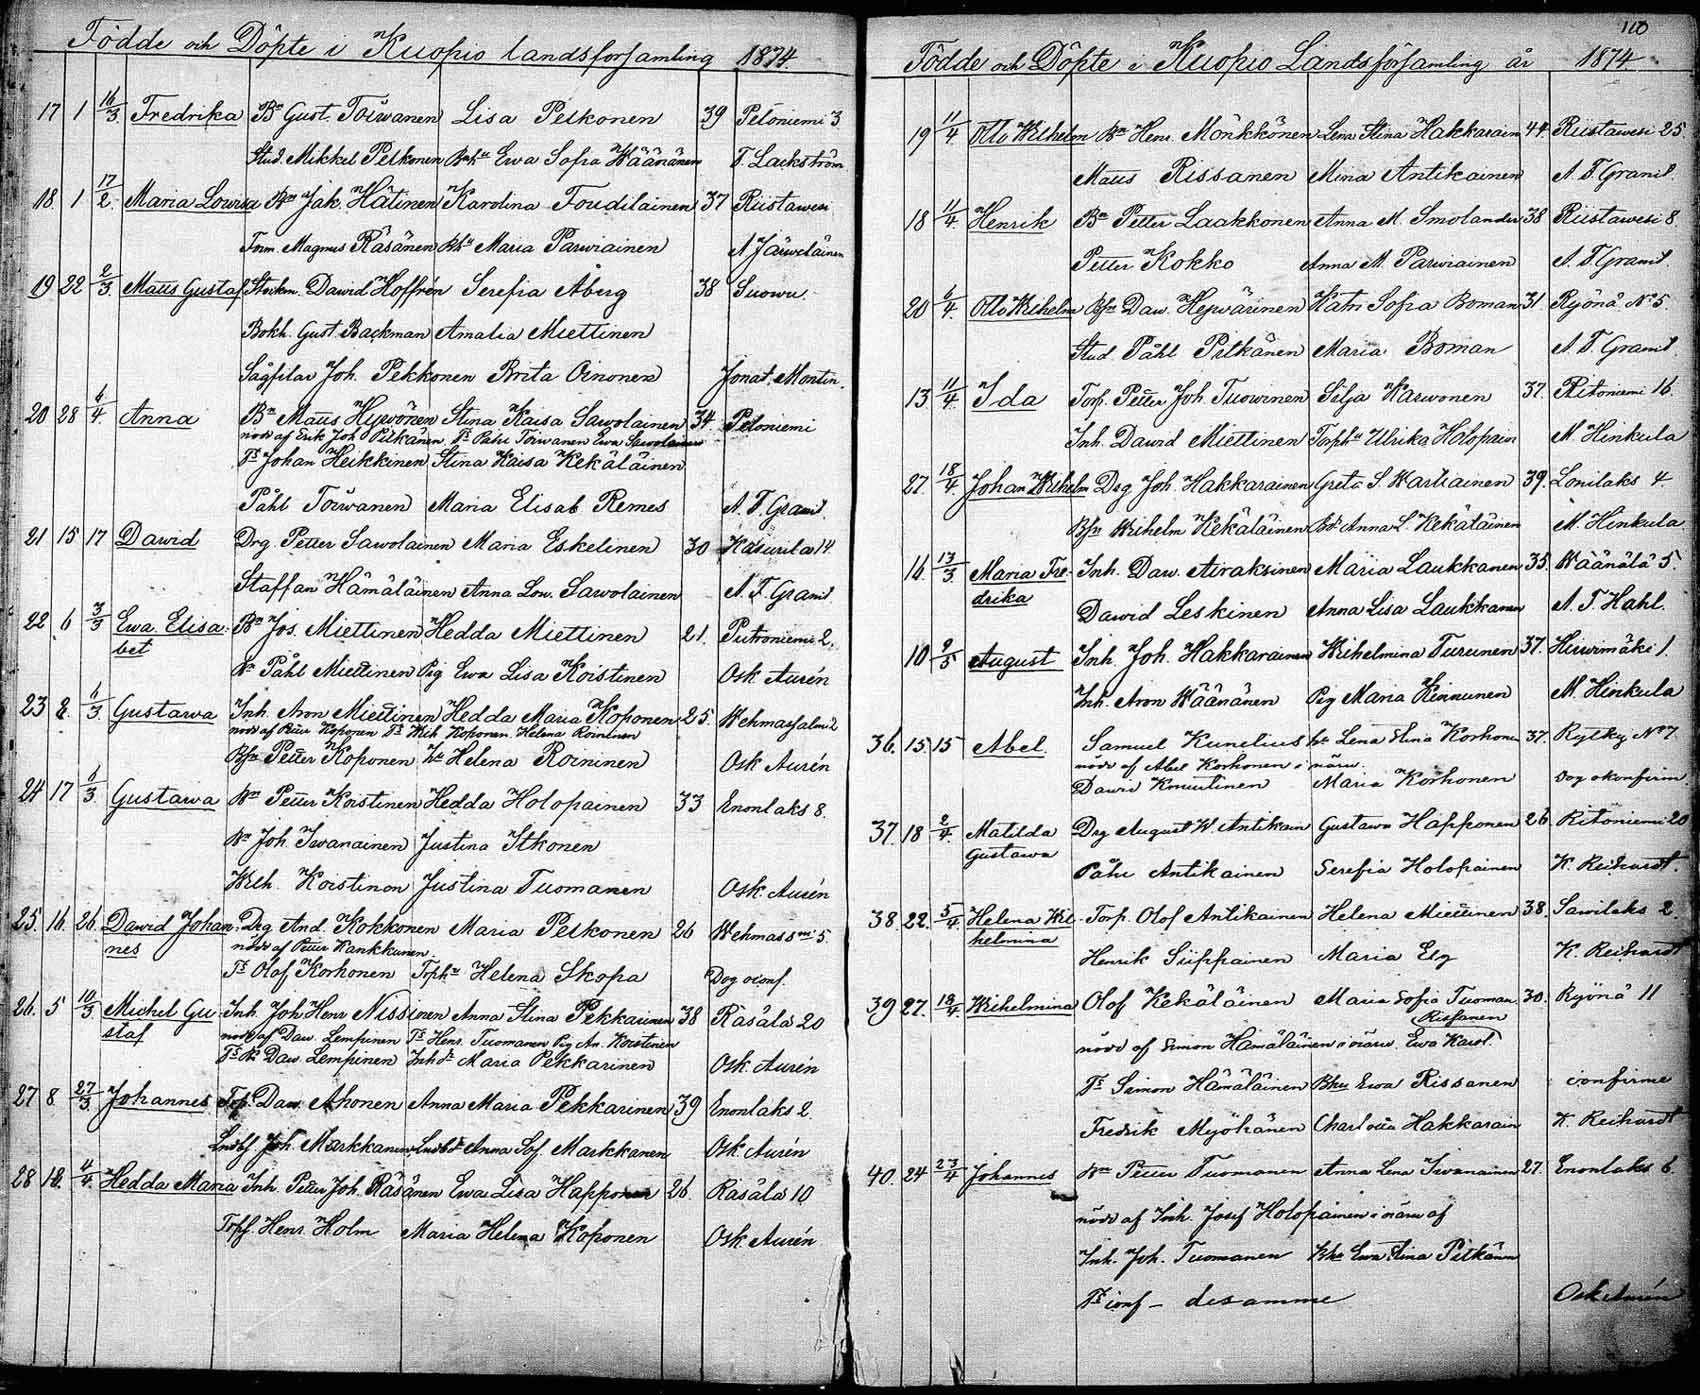 Födde och Döpte i Kuopio landsforsamling 1874.
17 1 16/3 Fredrika Bn Gust. Toiwanen Lisa Pelkonen 39 Petoniemi 3
Stud. Mikkel Pelkonen Ewa Sofia Wäänänen T. Lackström
18. 1 17/2. Maria Lowisa Bn Jak. Hätinen Karolina Toudilainen 37 Riistawesi
Magnus Räsänen Maria Parwiainen A Järweläinen
19 22 2/3. Matts Gustaf Dawid Hoffrén Serefia Åberg 38 Suowu.
Bokh. Gust. Backman Amalia Miettinen
Sågfilar Joh. Pekkonen Brita Oinonen Jonat. Montin.
20 28 6/4. Anna Bn Matts Hywönen Stina Kaisa Sawolainen 34 Petoniemi
nöd af Erik Joh Pitkänen, Ts Petri Toiwanen Ewa Sawolainen
Ts Johan Heikkinen Stina Kaisa Kekäläinen
Påhl Toiwanen Maria Elisab Remes A. F. Granit
21 15 17 Dawid Drg. Petter Sawolainen Maria Eskelinen 30 Kasurila 14
Staffan Hämäläinen Anna Lov. Sawolainen A. F. Granit
22 6 3/3 Ewa Elisa- Bn Jos. Miettinen Hedda Miettinen 21. Putroniemi 2.
bet
Påhl Miettinen Pig Ewa Lisa Koistinen Osk Aurén
23 8. 6/3. Gustawa Inh. Aron Miettinen Hedda Maria Koponen 25 Wehmassalmi 2
nöd af Petter Koponen Ts Wilh Koponen. Helena Roininen
Bsn Petter Koponen Helena Roininen Osk Aurén
24 17 6/3. Gustawa Petter Koistinen Hedda Holopainen 33 Enonlaks 8.
Joh. Iwanainen Justina Itkonen
Wilh. Koistinen Justina Tuomanen Osk. Aurén
25. 16 26. Dawid Johan- Drg And. Kokkonen Maria Pelkonen 26 Wehmassmi 5.
nes nöd af Petter Kankkunen.
Ts Olof Korhonen Helena Skopa Dog oconf.
26. 5 10/3 Michel Gu- Inh. Joh Henr Nissinen Anna Stina Pekkarinen 38 Räsälä 20
staf nöd af Daw. Lempinen Ts Henr. Tuomanen Pig An. Koistinen
Daw. Lempinen Maria Pekkarinen Osk. Aurén
27 8 27/3 Johannes Torp. Daw Ahonen Anna Maria Pekkarinen 39 Enonlaks 2.
Joh. Markkanen Anna Sof. Markkanen Osk Aurén
28 18. 4/4 Hedda Maria Inh Petter Joh. Räsänen Ewa Lisa Happonen 26 Räsälä 10
Henr. Holm Maria Helena Koponen Osk Aurén
110
Födde och Döpte i Kuopio Landsförsamling år 1874.
19 11/4 Otto Wilhelm Bn Henr. Mönkkönen Lena Stina Hakkarain 44. Riistawesi 25
Matts Rissanen Mina Antikainen A. F. Granit.
18 11/4. Henrik Bn Petter Laakkonen Anna M. Smolander 38 Riistawesi 8.
Petter Kokko Anna M. Parwiainen A. F. Granit
20 6/4. Otto Wilhelm Bsn Daw. Hejwärinen Katri Sofia Boman 31. Ryönä No 5.
Stud. Påhl Pitkänen Maria Boman A. F. Granit.
13 11/4. Ida Torp. Petter Joh. Tuowinen Silja Karwonen 37. Ritoniemi 16.
Inh. Dawid Miettinen Ulrika Holopain M. Hinkula
27. 18/4. Johan Wilhelm Drg Joh. Hakkarainen Greta S. Kartiainen 39. Lonilaks 4.
Bsn Wilhelm Kekäläinen Anna L. Kekäläinen M. Hinkula
16. 13/3 Maria Fre- Inh. Daw. Airaksinen Maria Laukkanen 35. Wäänälä 5.
drika Dawid Leskinen Anna Lisa Laukkanen A. T. Hahl.
10 9/5 August Inh. Joh. Hakkarainen Wilhelmina Turunen 37. Hirwimäki 1.
Inh. Aron Wäänänen Pig Maria Kinnunen M. Hinkula
36. 15 15 Abel. Samuel Kunelius Lena Stina Korhonen 37. Rytky No 7.
nöd af Abel Korhonen i närw.
Dawid Knuutinen Maria Korhonen Dog okonfirm
37. 18 2/4. Matilda Drg August W. Antikain Gustawa Happonen 26. Ritoniemi 20
Gustawa
Påhl Antikainen Serefia Holopainen K. Reihardt.
38. 22. 5/4. Helena Wil- Torp. Olof Antikainen Helena Miettinen 38. Sawilaks 2.
helmina
Henrik Siippainen Maria Elg K. Reihardt
39 27. 13/4. Wilhelmina Olof Kekäläinen Maria Sofia Tuoman. 30. Ryönä 11
Rissanen
nöd af Simon Hämäläinen i närw. Ewa Karol.
Ts Simon Hämäläinen Ewa Rissanen confirme
Fredrik Myöhänen Charlotta Hakkarain K. Reihardt
40. 24 23/4 Johannes Petter Tuomanen Anna Lena Iwanainen 27. Enonlaks 6.
nöd af Inh. Josef Holopainen i närw af
Inh. Joh. Tuomanen Ewa Stina Pitkänen
Ts conf – desamme Osk Aurén